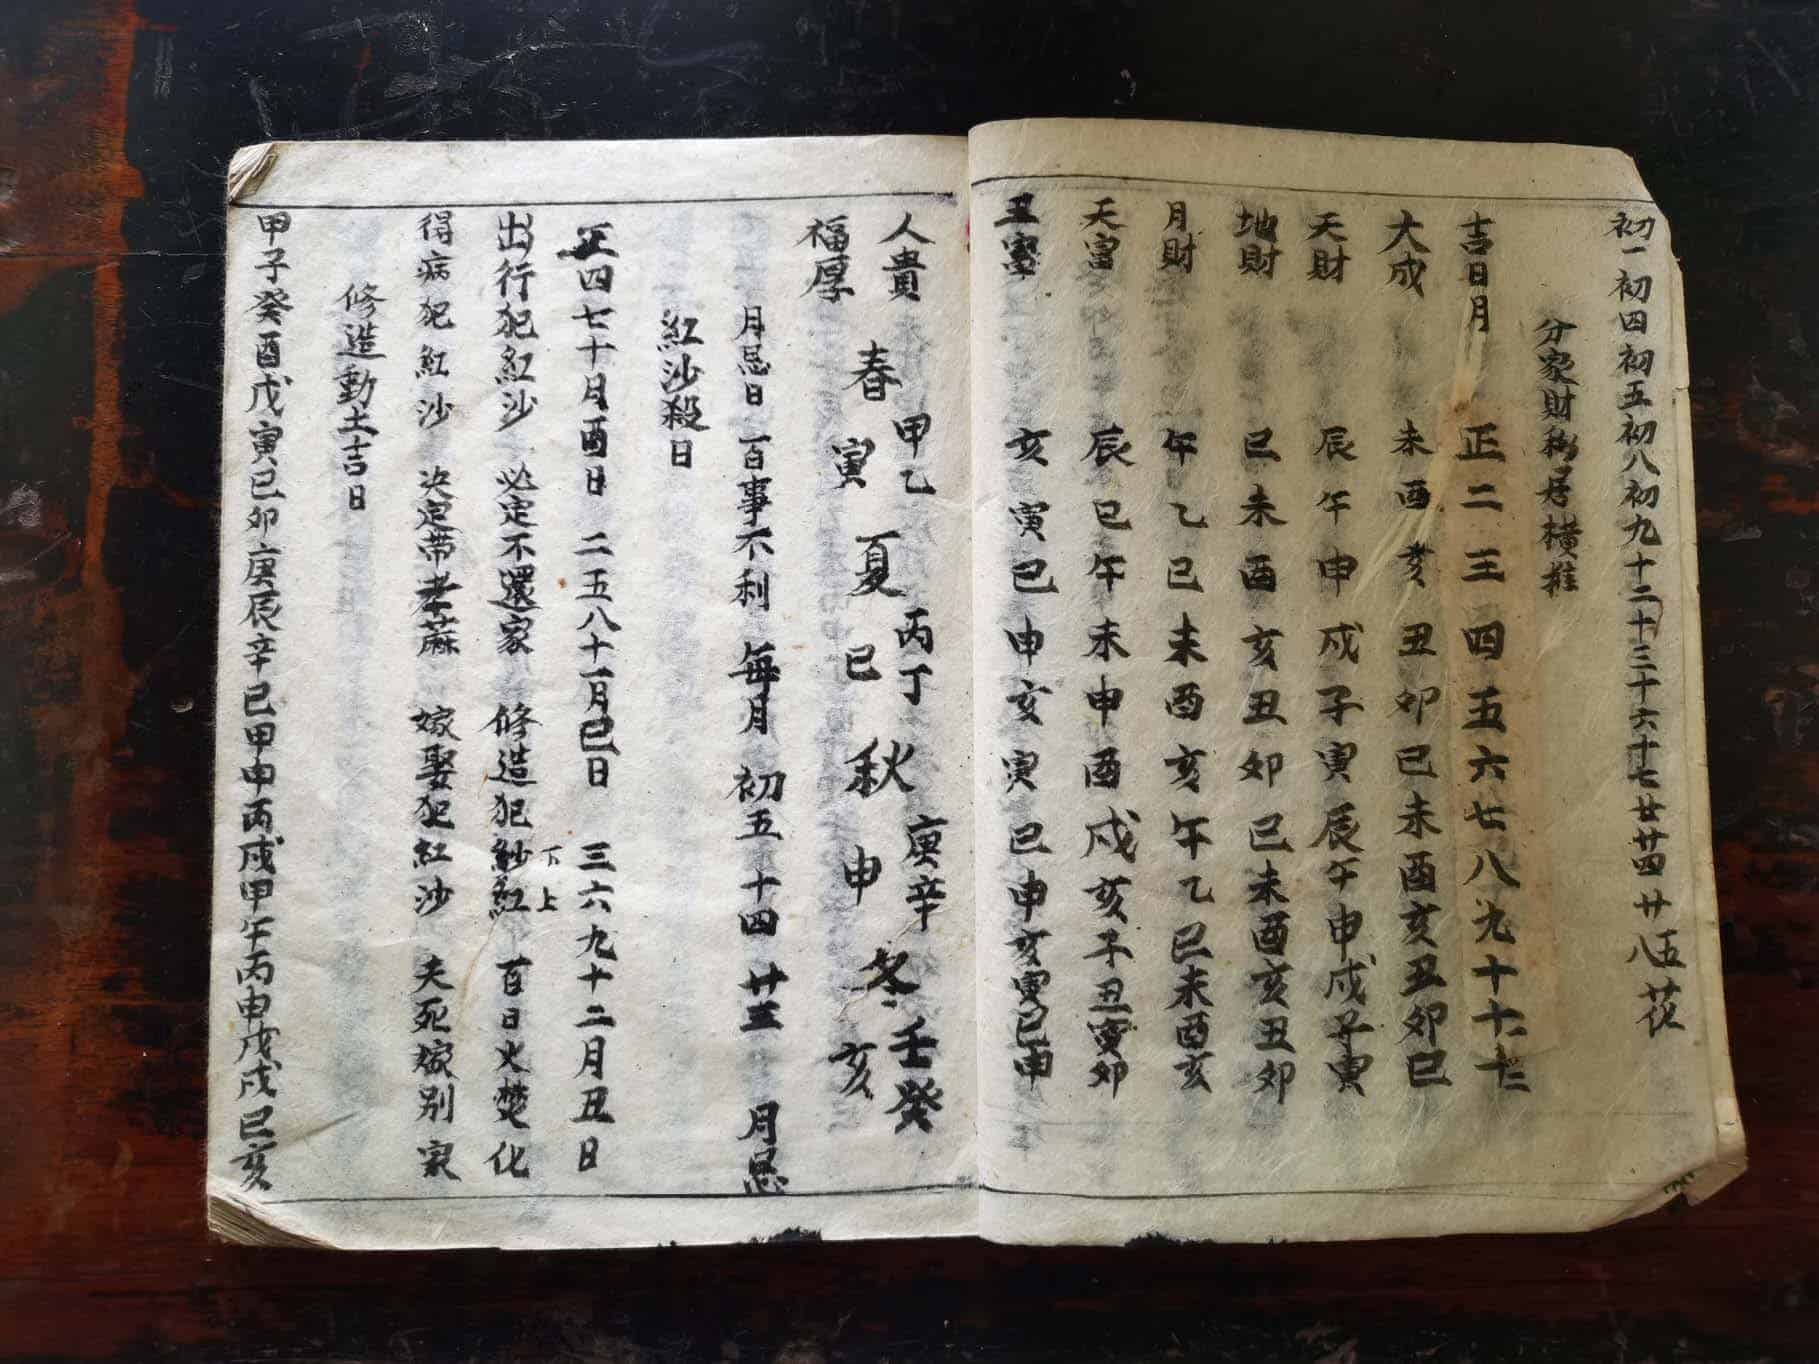 初一初四初五初八初九十二十三十六十七廿廿四廿五八花
分家財移居橫推
吉日月 正二三四五六七八九十十一十二
大成 未酉亥丑卯巳未酉亥丑卯巳
天財 辰午申戌子寅辰午申戌子寅
地財 巳未酉亥丑卯巳未酉亥丑卯
月財 午乙巳未酉亥午乙巳未酉亥
天富 辰巳午未申酉戌亥子丑寅卯
亥寅巳申亥寅巳申亥寅巳申
人貴 甲乙 丙丁 庚辛 壬癸
春 夏 秋 冬
福厚 寅 巳 申 亥
月忌日 百事不利 每月 初五 十四 廿三 月忌
紅沙殺日
正四七十月酉日 二五八十一月巳日 三六九十二月丑日
出行犯紅沙 必定不還家 修造犯紗紅 百日火焚化
下上
得病犯紅沙 决定帶孝蔴 嫁娶犯紅沙 夫死嫁别家
修造動土吉日
甲子癸酉戊寅己卯庚辰辛巳甲申丙戌甲午丙申戊戌己亥